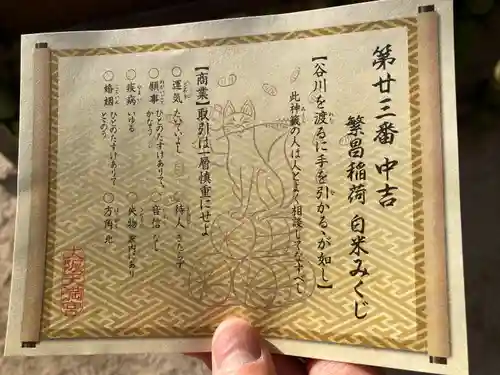 第廿三番 中吉
繁昌稲荷 白米みくじ
【谷川を渡るに手を引かるゝが如し】
此神籤の人は人とよく相談してなすべし
【商業】取引は一層慎重にせよ
○運気 たいていよし
○願事 ひとのたすけありて、かなう
○疾病 いゆる
○婚姻 ひとのたすけありてととのう
○待人 きたらず
○音信 なし
○失物 家内にあり
○方角 北
大阪天満宮